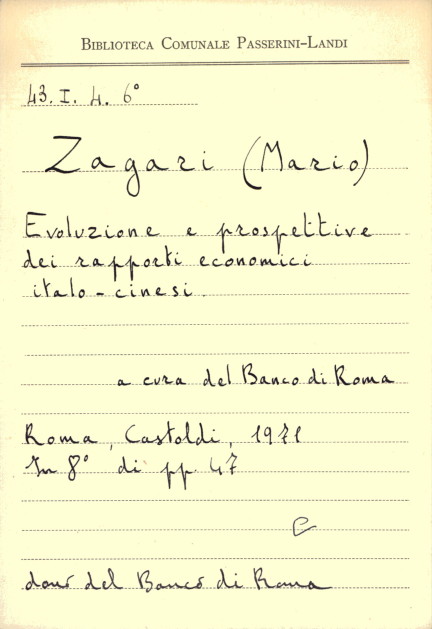 BIBLIOTECA COMUNALE PASSERINI-LANDI
43. I. 4. 6°
Zagari (Mario)
Evoluzione e prospettive
dei rapporti economici
italo-cinesi.
a cura del Banco di Roma
Roma, Castoldi, 1971
In 8° di pp. 47
dono del Banco di Roma